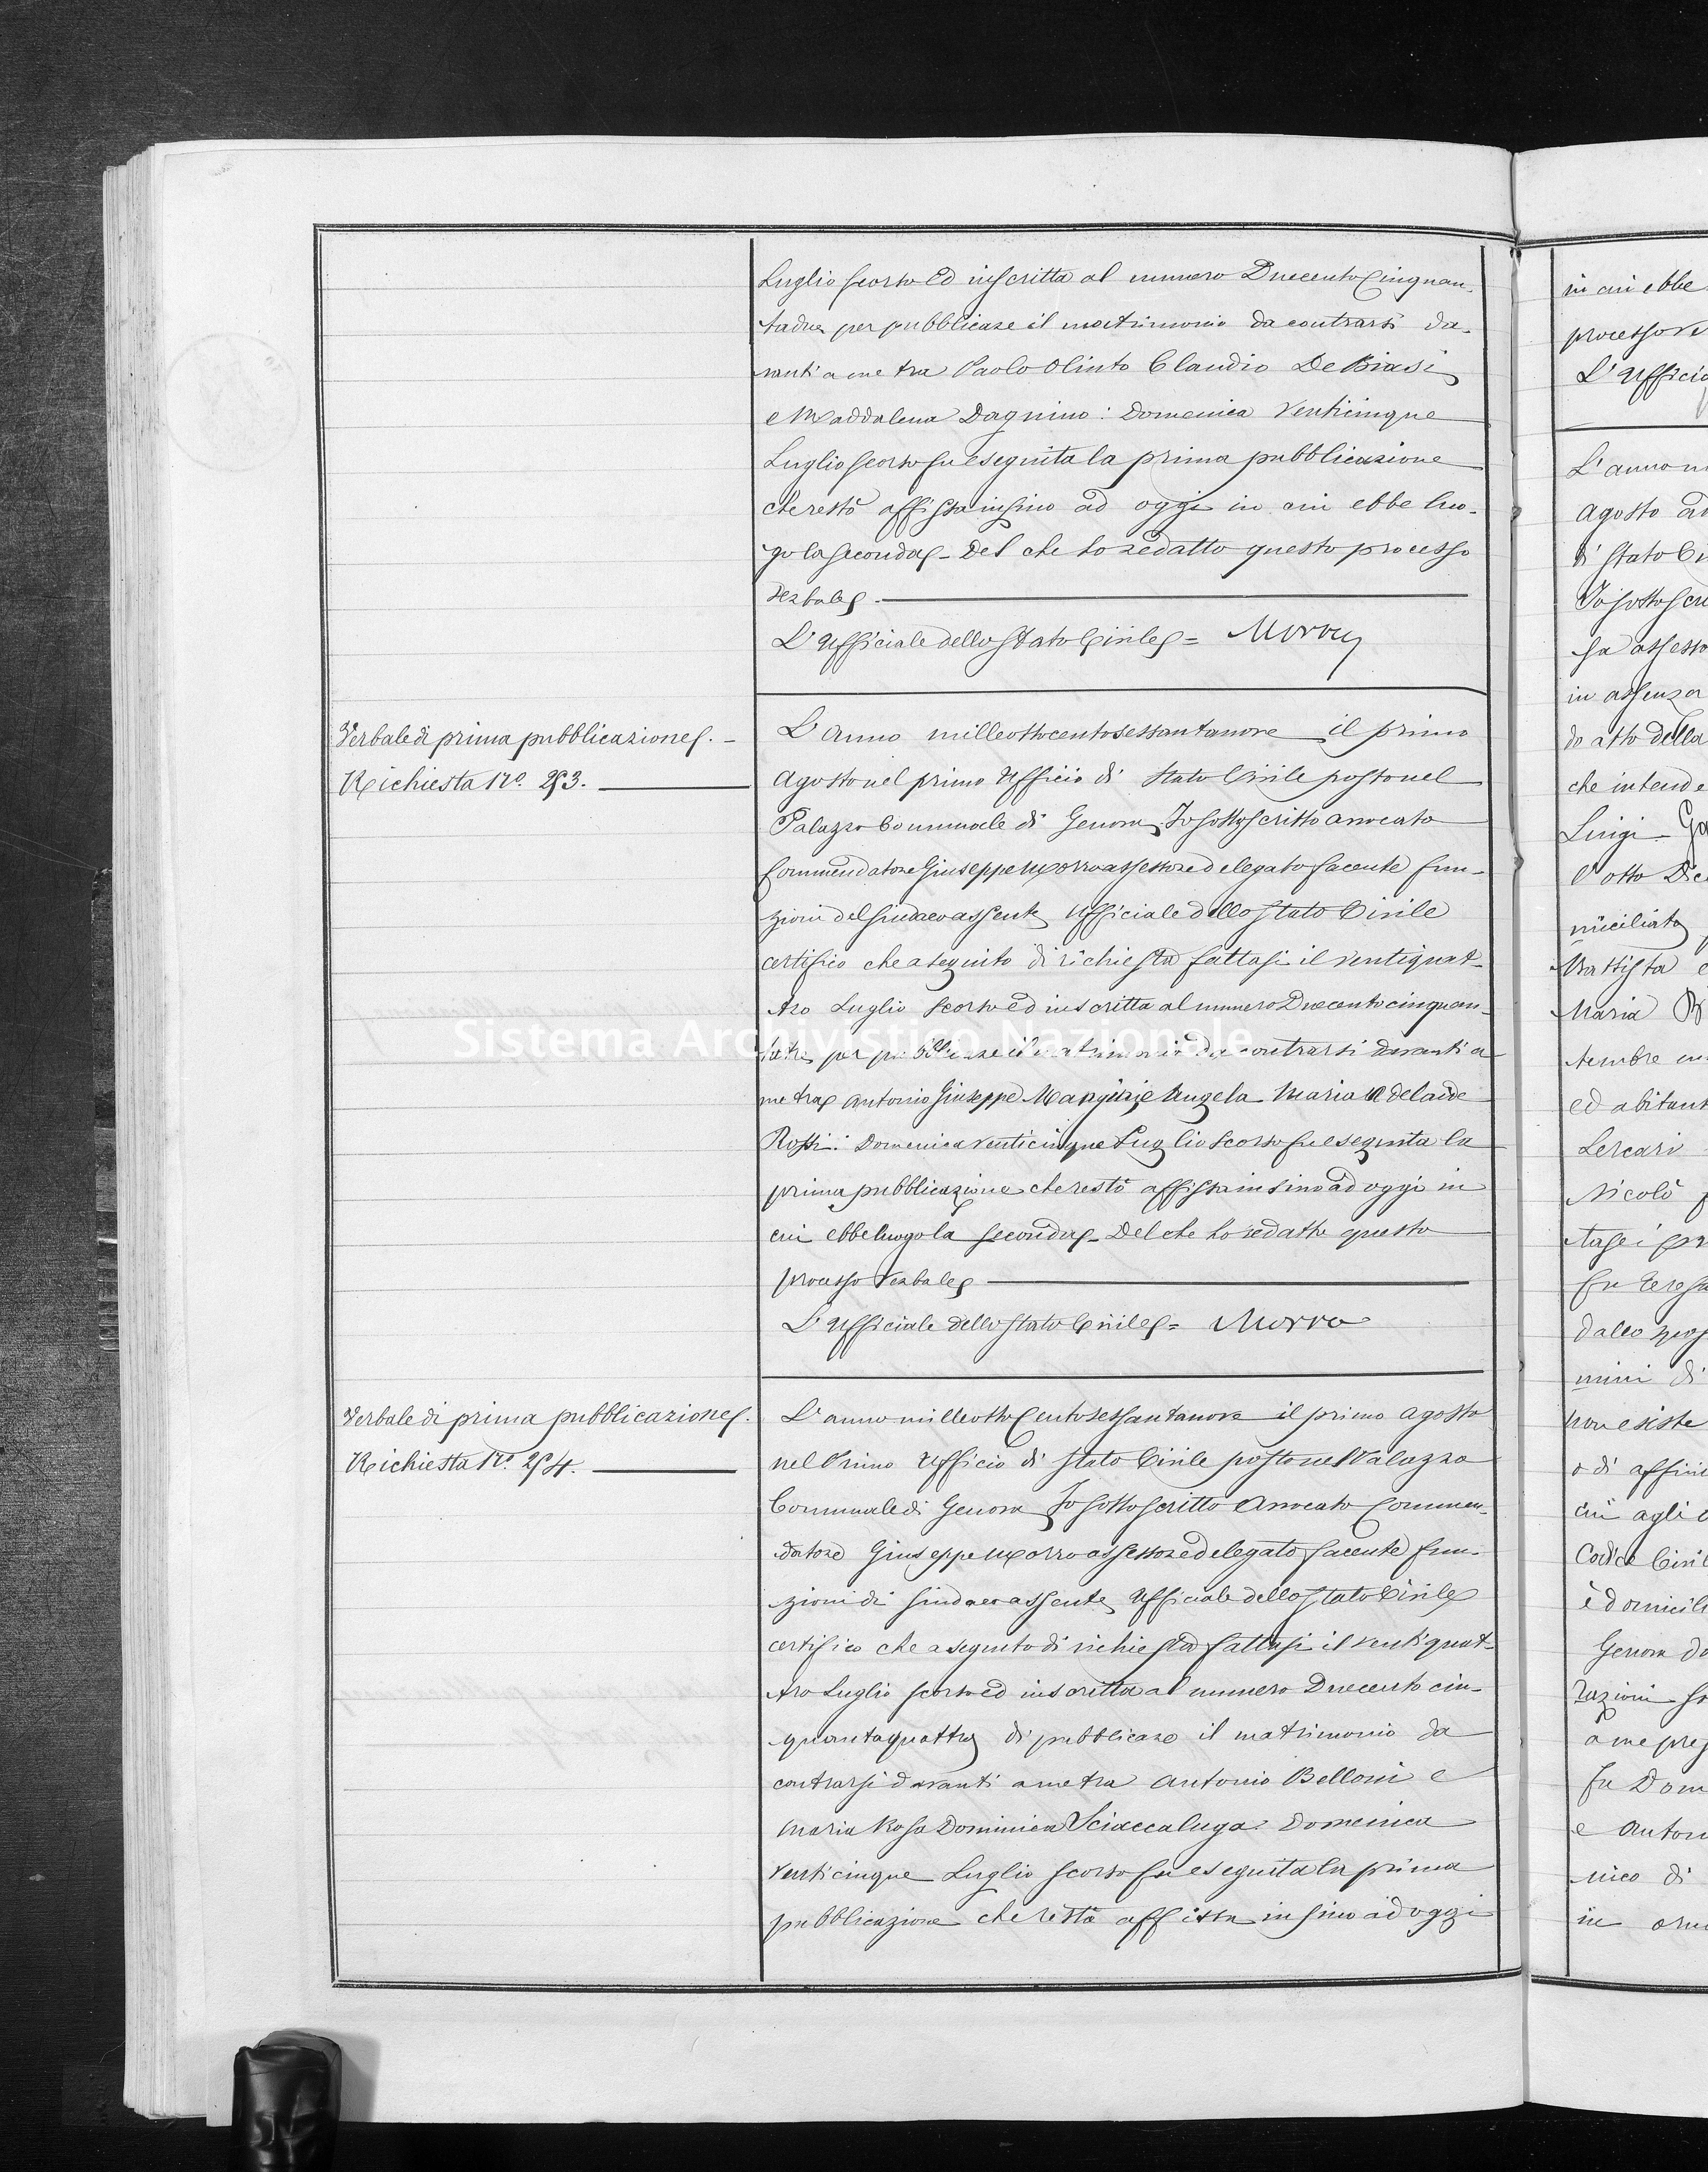 Luglio scorso ed inscritta al numero Duecento Cinquan-
tadue per pubblicare il matrimonio da contrarsi da-
vanti a me tra Paolo Olinto Claudio De Biasi
e Maddalena Dagnino: Domenica Venticinque
Luglio scorso fu eseguita la prima pubblicazione
che restò affissa insino ad oggi in cui ebbe luo-
go la seconda - Del che ho redatto questo processo
verbale.
L'Ufficiale dello Stato Civile = Morro
Verbale di prima pubblicazione. -
Richiesta No. 253.
L'Anno milleottocentosessantanove il primo
Agosto nel primo Ufficio di Stato Civile posto nel
Palazzo Communale di Genova, Io sottoscritto avvocato
Commendatore Giuseppe Morro assessore delegato facente fun-
zioni del Sindaco assente Ufficiale dello Stato Civile
certifico che a seguito di richiesta fattasi il ventiquat-
tro Luglio scorso ed inscritta al numero Duecentocinquan-
tatre per pubblicare il matrimonio da contrarsi davanti a
me tra Antonio Giuseppe e Angela Maria Adelaide
Rossi: Domenica venticinque Luglio scorso fu eseguita la
prima pubblicazione che restò affissa insino ad oggi in
cui ebbe luogo la seconda - Del che ho redatto questo
processo verbale
L'Ufficiale dello Stato Civile = Morro
Verbale di prima pubblicazione.
Richiesta No. 254.
L'anno milleotto Centosessantanove il primo Agosto
nel Primo Ufficio di Stato Civile posto nel Palazzo
Communale di Genova Io sottoscritto Avvocato Commen-
datore Giuseppe Morro assessore delegato facente fun-
zioni di Sindaco assente Ufficiale dello Stato Civile
certifico che a seguito di richiesta fattasi il ventiquat-
tro Luglio scorso ed inscritta al numero Duecento cin-
quantaquattro di pubblicare il matrimonio da
contrarsi davanti a me tra Antonio Belloni e
Maria Rosa Dominica Sciaccaluga: Domenica
venticinque Luglio scorso fu eseguita la prima
pubblicazione che restò affissa insino ad oggi
Sistema Archivistico Nazionale
in cui ebbe
processo ve
L'Ufficia
L'anno m
Agosto
di Stato Ci
Io sottoscri
sa assesso
in assenza
do atto della
che intende
Luigi
l'otto Dic
miciliato
Battista e
Maria
tembre
ed abitant
Lercari
Nicolò
fu Teresa
mini di
non esiste
o di affini
cui agli
Codice Civil
è domicili
Genova da
razioni
a me pres
fu Dom
e Anton
nico di
in